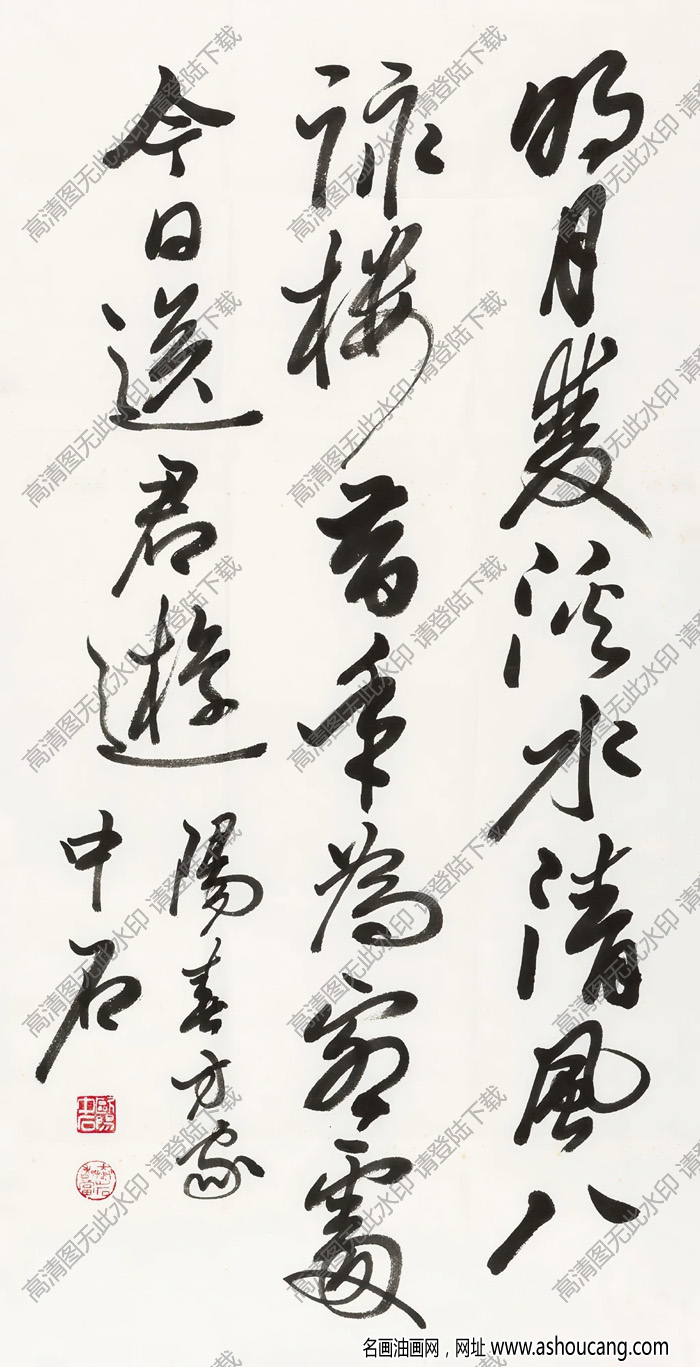 明月双溪水清风八
詠楼昔年为客處
今日送君遊
陽春方家
中石
歐陽中石
名画油画网，网址 www.ashoucang.com
高清图无此水印 请登陆下载